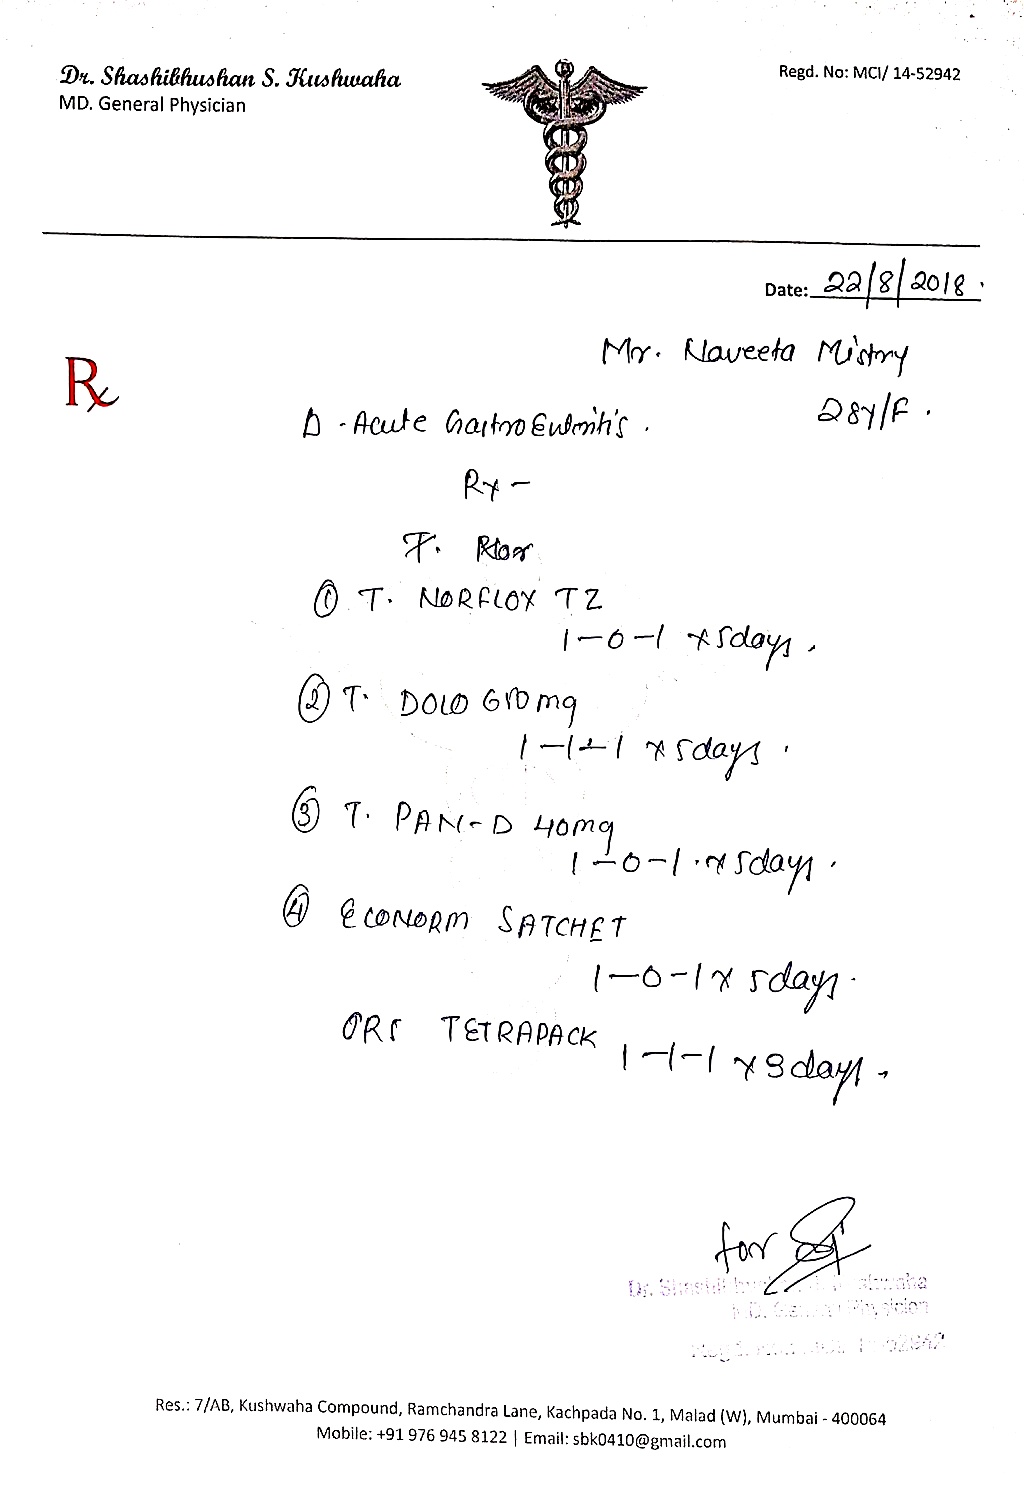 Dr. Shashibhushan S. Kushwaha
MD. General Physician
Regd. No: MCI/ 14-52942
Date: 22/8/2018.
Mr. Naveeta Mistry
28y/F.
Rx
D - Acute GastroEntritis.
Rx -
T.
① T. NORFLOX TZ
1-0-1 x 5days.
② T. DOLO 650mg
1-1-1 x 5days.
③ T. PAN-D 40mg
1-0-1 x 5days.
④ ECONORM SATCHET
1-0-1 x 5days.
ORS TETRAPACK
1-1-1 x 3days.
for
Dr.
Physician
Res.: 7/AB, Kushwaha Compound, Ramchandra Lane, Kachpada No. 1, Malad (W), Mumbai - 400064
Mobile: +91 976 945 8122 | Email: sbk0410@gmail.com